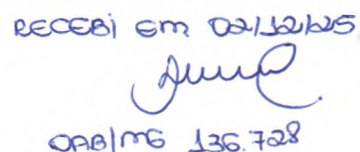 RECEBi Em 02/12/25
OAB/MG 136.728